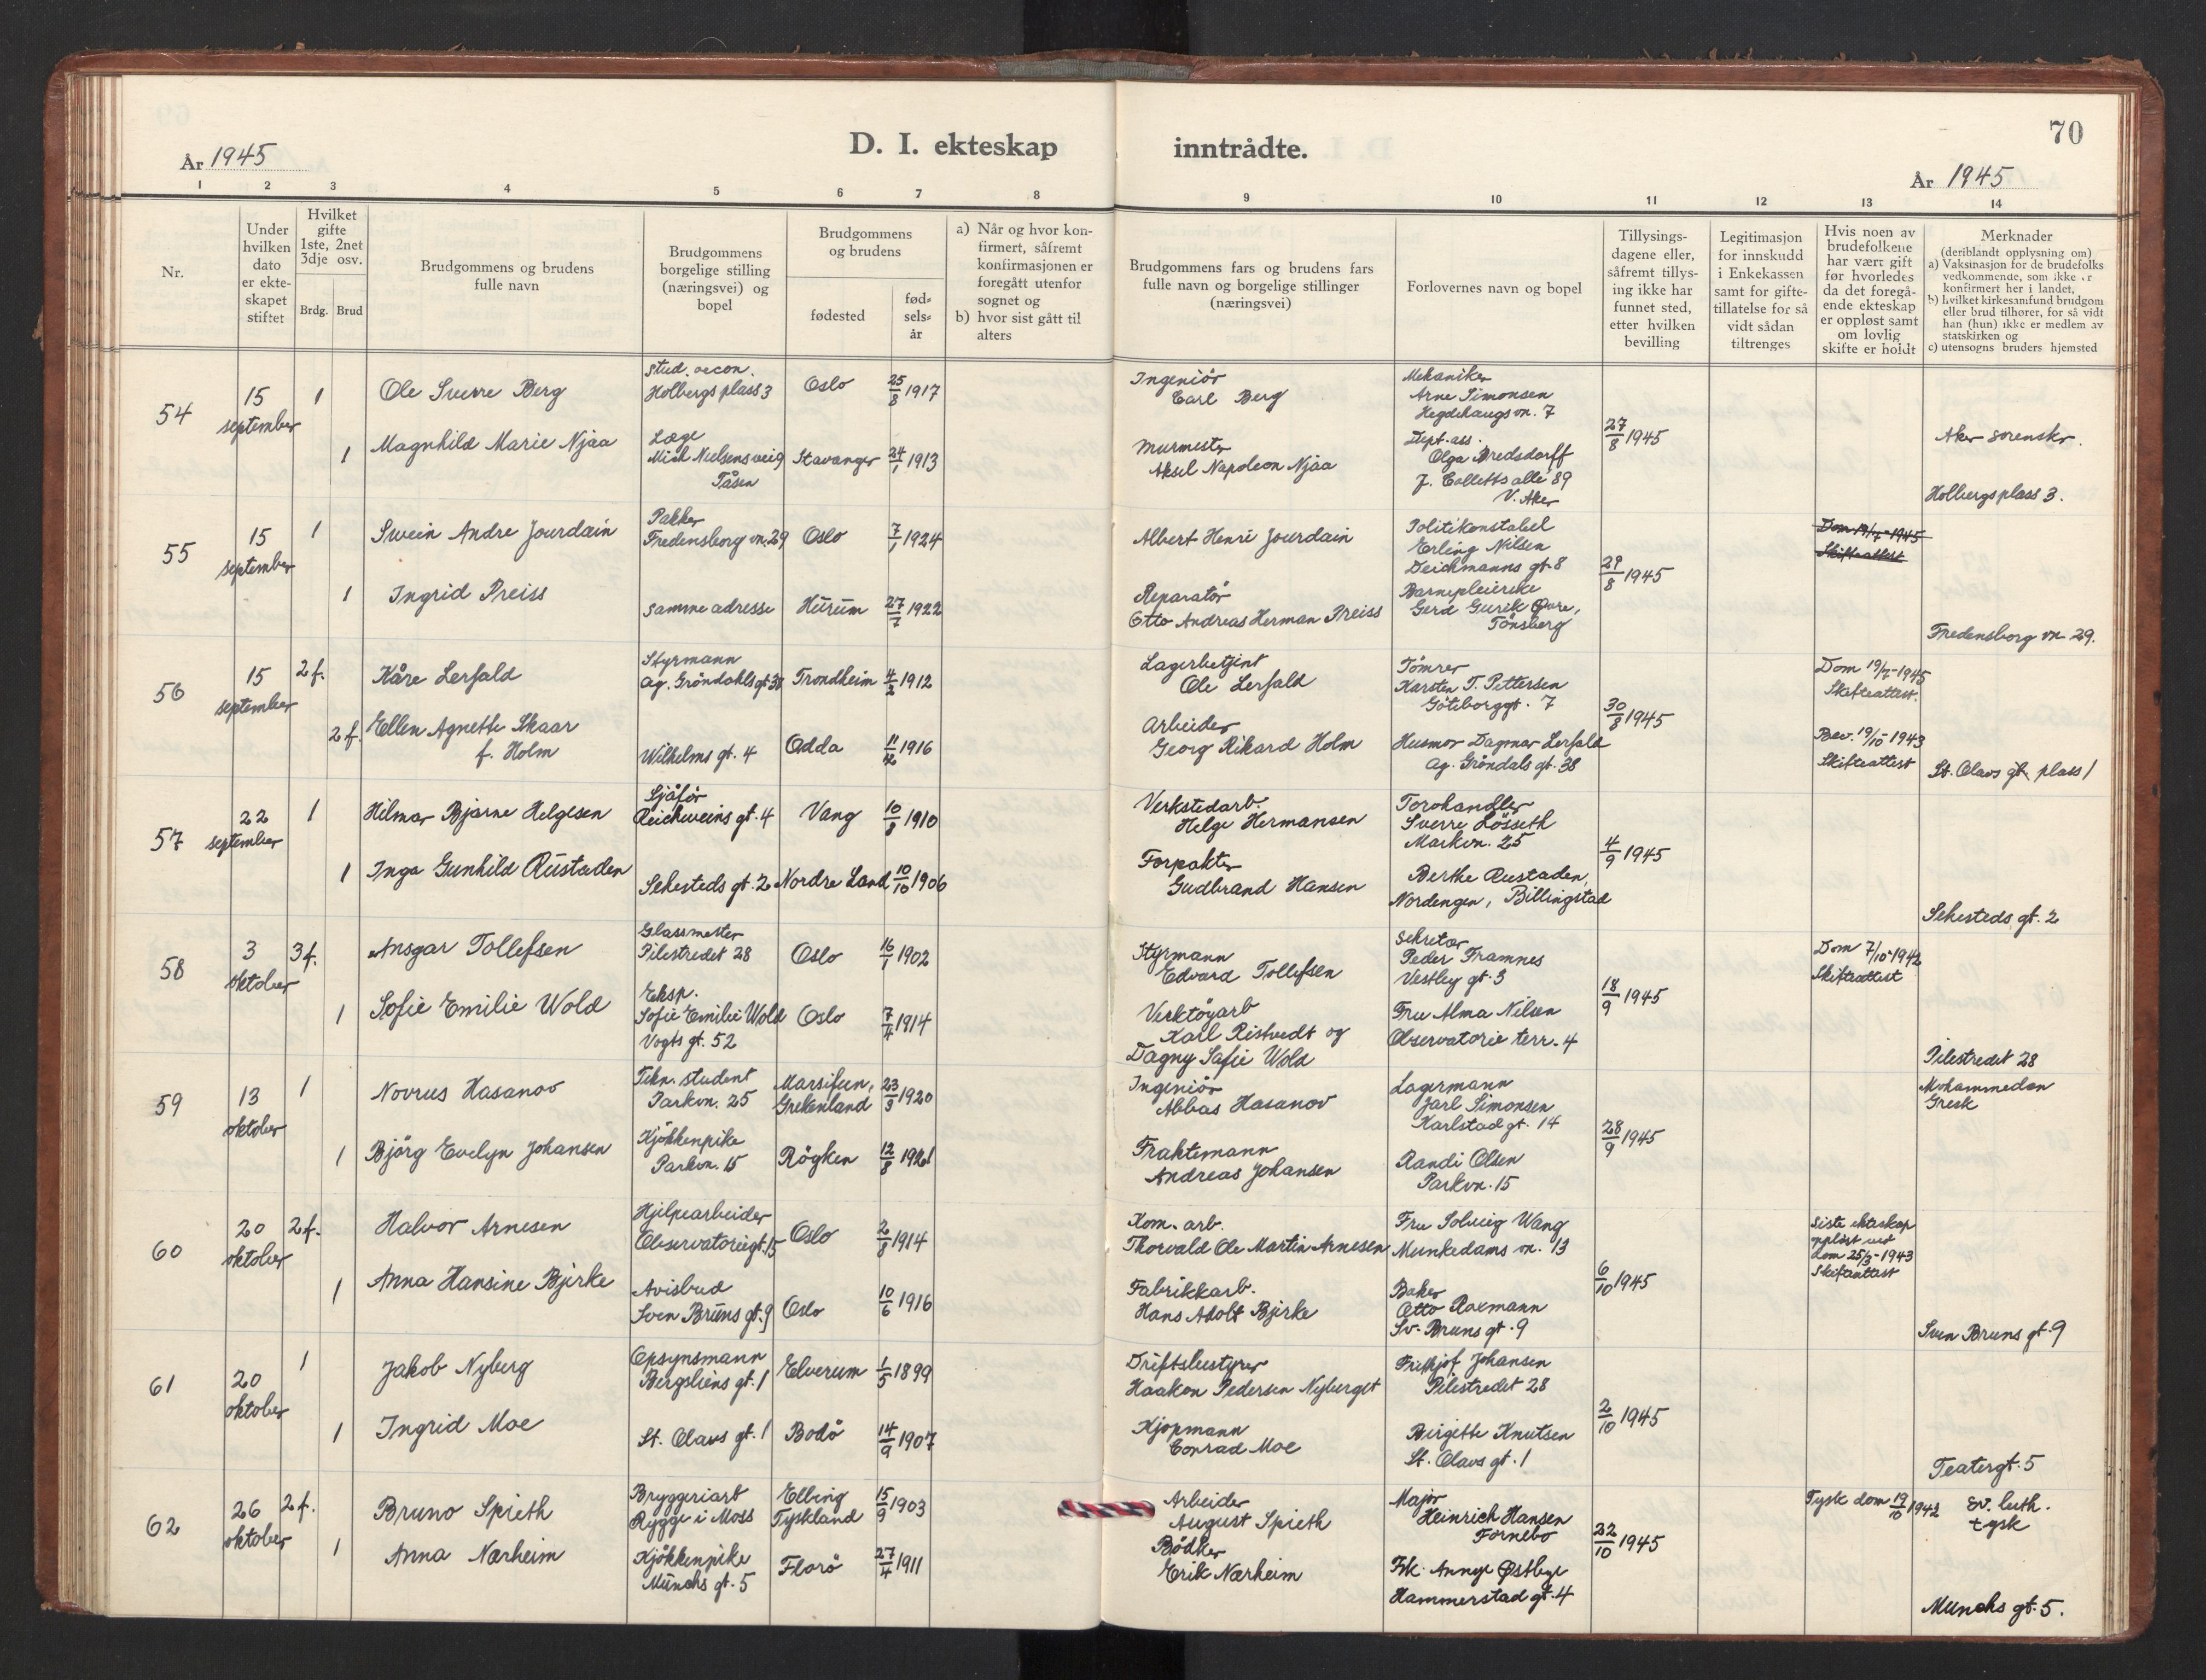 År 1945
D. I. ekteskap
inntrådte.
70
År 1945
1 2 3 4 5 6 7 8 9 10 11 12 13 14
Nr.
Under
hvilken
dato
er ekte-
skapet
stiftet
Hvilket
gifte
1ste, 2net
3dje osv.
Brdg. Brud
Brudgommens og brudens
fulle navn
Brudgommens
borgelige stilling
(næringsvei) og
bopel
Brudgommens
og brudens
fødested
fød-
sels-
år
a) Når og hvor kon-
firmert, såfremt
konfirmasjonen er
foregått utenfor
sognet og
b) hvor sist gått til
alters
Brudgommens fars og brudens fars
fulle navn og borgelige stillinger
(næringsvei)
Forlovernes navn og bopel
Tillysings-
dagene eller,
såfremt tillys-
ing ikke har
funnet sted,
etter hvilken
bevilling
Legitimasjon
for innskudd
i Enkekassen
samt for gifte-
tillatelse for så
vidt sådan
tiltrenges
Hvis noen av
brudefolkene
har vært gift
før hvorledes
da det foregå-
ende ekteskap
er oppløst samt
om lovlig
skifte er holdt
Merknader
(deriblandt opplysning om)
a) Vaksinasjon for de brudefolks
vedkommende, som ikke er
konfirmert her i landet,
b) hvilket kirkesamfund brudgom
eller brud tilhører, for så vidt
han (hun) ikke er medlem av
statskirken og
c) utensogns bruders hjemsted
54
15
september
1
Ole Sverre Berg
Stud. oecon.
Holbergs plass 3
Oslo
25/8 1917
Ingeniör
Carl Berg
Mekaniker
Arne Simonsen
Hegdehaugsvn. 7
27/8 1945
Aker sorenskr.
1
Magnhild Marie Njaa
Læge
Mich Nielsens vei 9
Tåsen
Stavanger
24/1 1913
Murmester
Aksel Napoleon Njaa
Dept. ass.
Olga Bredsdorff
J. Colletts alle 89
V. Aker
Holbergs plass 3.
55
15
september
1
Svein Andre Jourdain
Pakker
Fredensborg vn. 29
Oslo
7/1 1924
Albert Henri Jourdain
Politikonstabel
Erling Nilsen
Deichmanns gt. 8
29/8 1945
Dom 19/7-1945
Skifteattest
1
Ingrid Preiss
Samme adresse
Hurum
27/7 1922
Reparatör
Otto Andreas Herman Preiss
Barnepleierske
Gerd Gurik Øvre,
Tönsberg
Fredensborg vn 29.
56
15
september
2 f.
Kåre Lerfald
Styrmann
Ag. Gröndahls gt 38
Trondheim
4/2 1912
Lagerbetjent
Ole Lerfald
Tömrer
Karsten T. Pettersen
Göteborggt. 7
30/8 1945
Dom 19/7-1945
Skifteattest.
2 f.
Ellen Agnethe Skaar
f. Holm
Wilhelms gt. 4
Odda
11/2 1916
Arbeider
Georg Rikard Holm
Husmor Dagmar Lerfald
Ag. Gröndals gt. 38
Bev. 19/10-1943
Skifteattest
St. Olavs gt. plass 1
57
22
september
1
Hilmar Bjarne Helgesen
Sjåför
Reichweins gt. 4
Vang
10/8 1910
Verkstedarb.
Helge Hermansen
Torvhandler
Sverre Lösseth
Markvn. 25
4/9 1945
1
Inga Gunhild Rustaden
Sehesteds gt. 2
Nordre Land
10/10 1906
Forpakter
Gudbrand Hansen
Berthe Rustaden,
Nordengen, Billingstad
Sehesteds gt. 2
58
3
oktober
3 f.
Ansgar Tollefsen
Glassmester
Pilestredet 28
Oslo
16/1 1902
Styrmann
Edvard Tollefsen
Sekretær
Peder Framnes
Vestbygt. 3
18/9 1945
Dom 7/10-1942
Skifteattest
1
Sofie Emilie Wold
Eksp.
Sofie Emilie Wold
Vogts gt. 52
Oslo
7/4 1914
Verktöyarb
Karl Ristvedt og
Dagny Sofie Wold
Fru Alma Nilsen
Observatorie terr. 4
Pilestredet 28
59
13
oktober
1
Novrus Hasanov
Tekn. student
Parkvn. 25
Marsifun,
Grekenland
23/3 1920
Ingeniör
Abbas Hasanov
Lagermann
Jarl Simonsen
Karlstad gt. 14
28/9 1945
Mohammedan
Gresk
1
Björg Evelyn Johansen
Kjökkenpike
Parkvn. 15
Röyken
12/8 1921
Fraktemann
Andreas Johansen
Randi Olsen
Parkvn. 15
60
20
oktober
2 f.
Halvor Arnesen
Hjelpearbeider
Observatoriegt. 15
Oslo
2/8 1914
Kom. arb.
Thorvald Ole Martin Arnesen
Fru Solveig Wang
Munkedams vn. 13
6/10 1945
Siste ekteskap
oppløst ved
dom 25/3-1943
Skifteattest
1
Anna Hansine Bjerke
Avisbud
Sven Bruns gt. 9
Oslo
10/6 1916
Fabrikkarb.
Hans Adolf Bjerke
Baker
Otto Roemann
Sv. Bruns gt. 9
Sven Bruns gt. 9
61
20
oktober
1
Jakob Nyberg
Opsynsmann
Bergsliens gt. 1
Elverum
1/5 1899
Driftsbestyrer
Haakon Pedersen Nyberget
Frithjof Johansen
Pilestredet 28
2/10 1945
1
Ingrid Moe
St. Olavs gt. 1
Bodö
14/9 1907
Kjöpmann
Conrad Moe
Birgitte Knutsen
St. Olavs gt. 1
Teatergt. 5
62
26
oktober
2 f.
Bruno Spieth
Bryggeriarb
Rygge i Moss
Elbing
Tyskland
15/9 1903
Arbeider
August Spieth
Major
Heinrich Hansen
Fornebo
22/10 1945
Tysk dom 19/10 1942
Ev. luth.
tysk
1
Anna Nærheim
Kjökkenpike
Munchs gt. 5
Florö
27/4 1911
Bödker
Erik Nærheim
Frk. Annye Østbye
Hammerstad gt. 4
Munchs gt. 5.